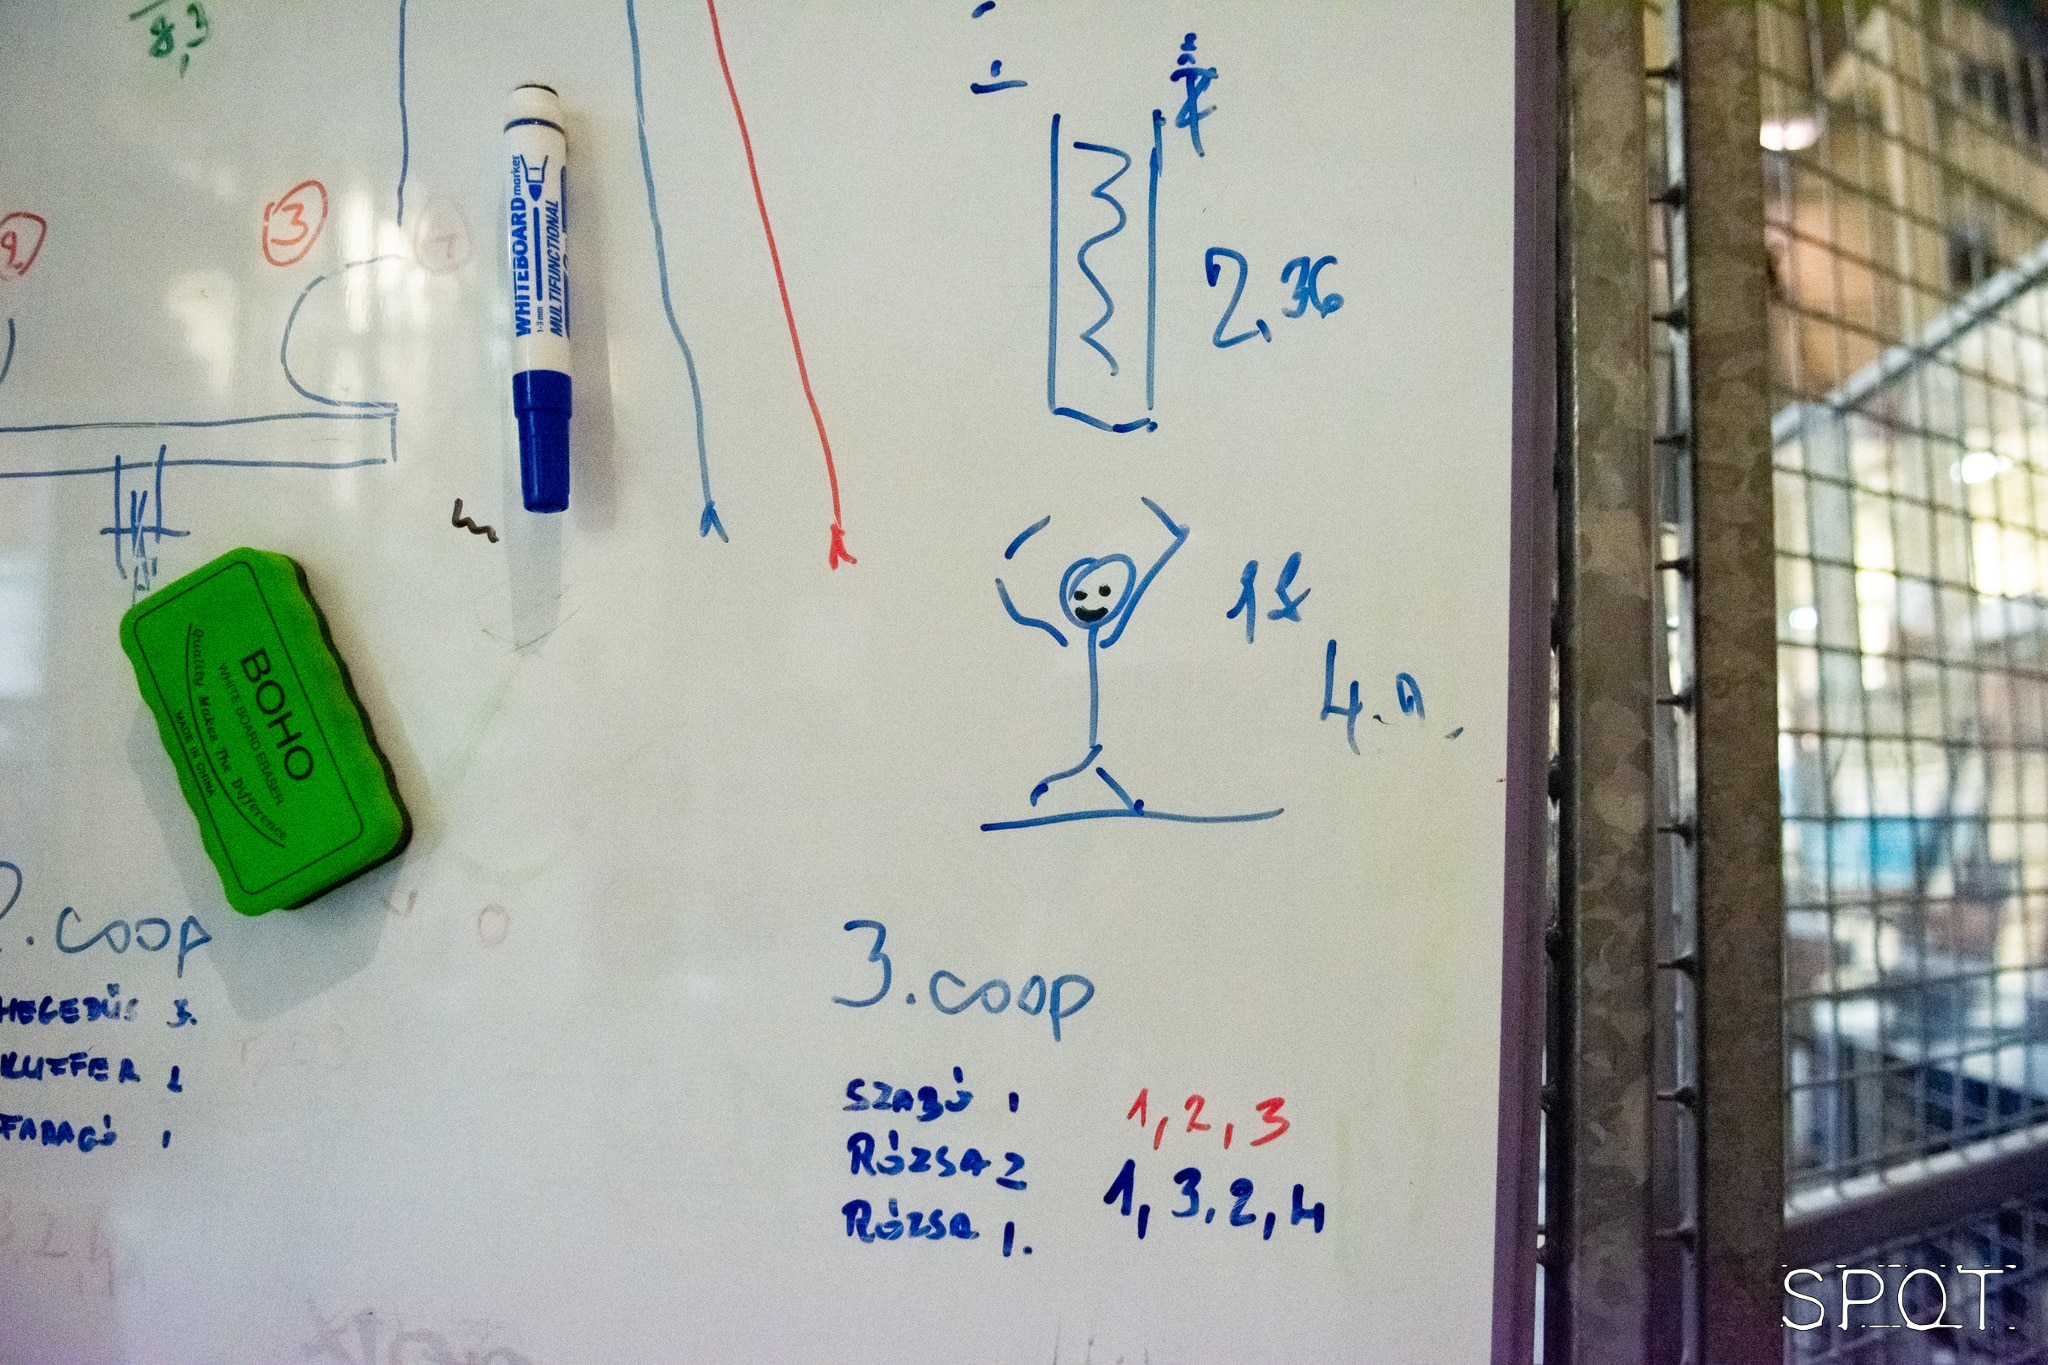 8,3
2
3
WHITEBOARD marker
MULTIFUNCTIONAL
1-3 mm
2,36
BOHO
WHITE BOARD ERASER
Quality Makes The Difference
MADE IN CHINA
2. coop
HEGEDŰS 3.
KUFFER 1
FARAGÓ 1
3. coop
SZABÓ 1
RÓZSA 2
RÓZSA 1.
1, 2, 3
1, 3, 2, 4
SPOT